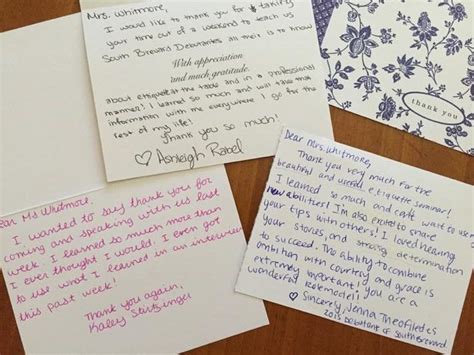 Mrs. Whitmore,
I would like to thank you for taking
your time out of a weekend to teach us
South Brevard Debutantes all their is to know
With appreciation
and much gratitude.
about etiquette at the table and in a professional
manner! I learned so much and will take that
information with me everywhere I go for the
rest of my life!
Thank you so much!
♡ Ashleigh Rabel
thank you
Dear Ms Whitmore,
I wanted to say thank you for
coming and speaking with us last
week. I learned so much more than
I ever thought I would. I even got
to use what I learned in an interview
this past week!
Thank you again,
Kaley
Dear Mrs. Whitmore,
Thank you very much for the
beautiful and useful etiquette seminar!
I learned so much and can't wait to use my
new abilities! I'm also excited to share
your tips with others! I loved hearing
your stories, and strong determination
to succeed. The ability to combine
ambition with courtesy and grace is
extremely important! You are a
wonderful Rolemodel!
♡ Sincerely, Jenna
2015 Debutant of South Brevard